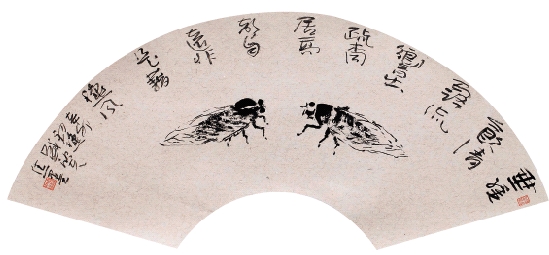 垂緌
飲清
露流
響出
疏桐
居高
聲自
遠非
是藉
秋風